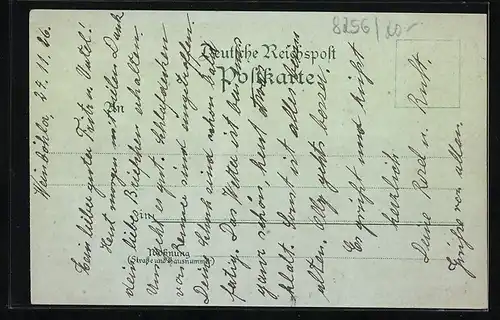 8256/20-
Deutsche Reichspost
Postkarte
An
in
Wohnung
(Straße und Hausnummer)
Weinböhla, 22.11.06.
Mein lieber guter Fritz u. Mutti!
Heut morgen mit vielen Dank
dein liebes Briefchen erhalten.
Uns geht es gut. Schlüsselchen
von sind eingetroffen.
Deine Schuh sind schon bald
fertig. Das Wetter ist bei uns
ganz schön, heut etwas
kalt. Sonst ist alles beim
alten. Alley gehts besser.
Es grüßt und küßt
herzlich
Deine u. Mutti.
Grüße von allen.